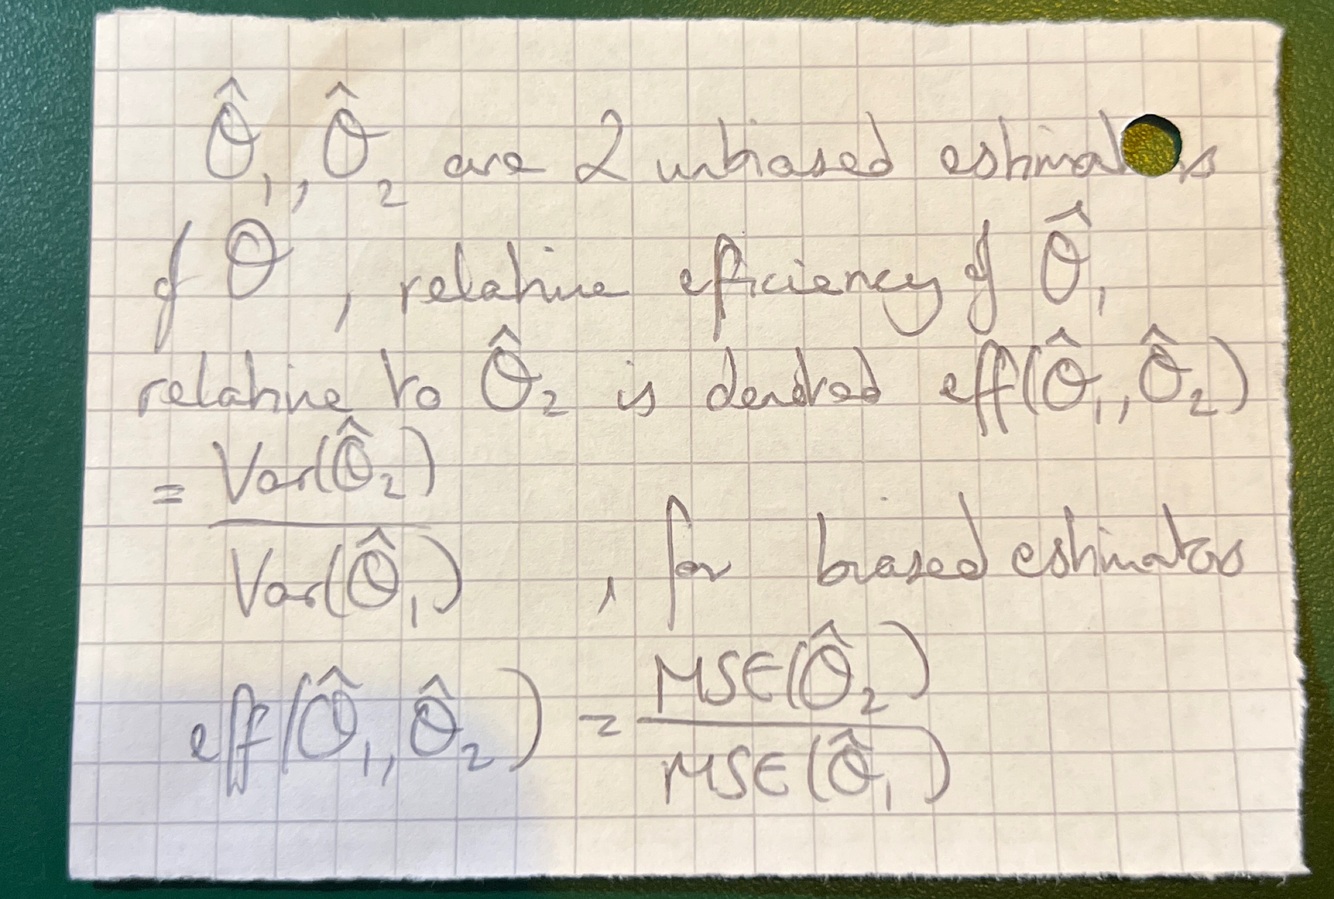 θ̂₁, θ̂₂ are 2 unbiased estimators
of θ, relative efficiency of θ̂₁
relative to θ̂₂ is denoted eff(θ̂₁, θ̂₂)
= Var(θ̂₂) / Var(θ̂₁) , for biased estimators
eff(θ̂₁, θ̂₂) = MSE(θ̂₂) / MSE(θ̂₁)